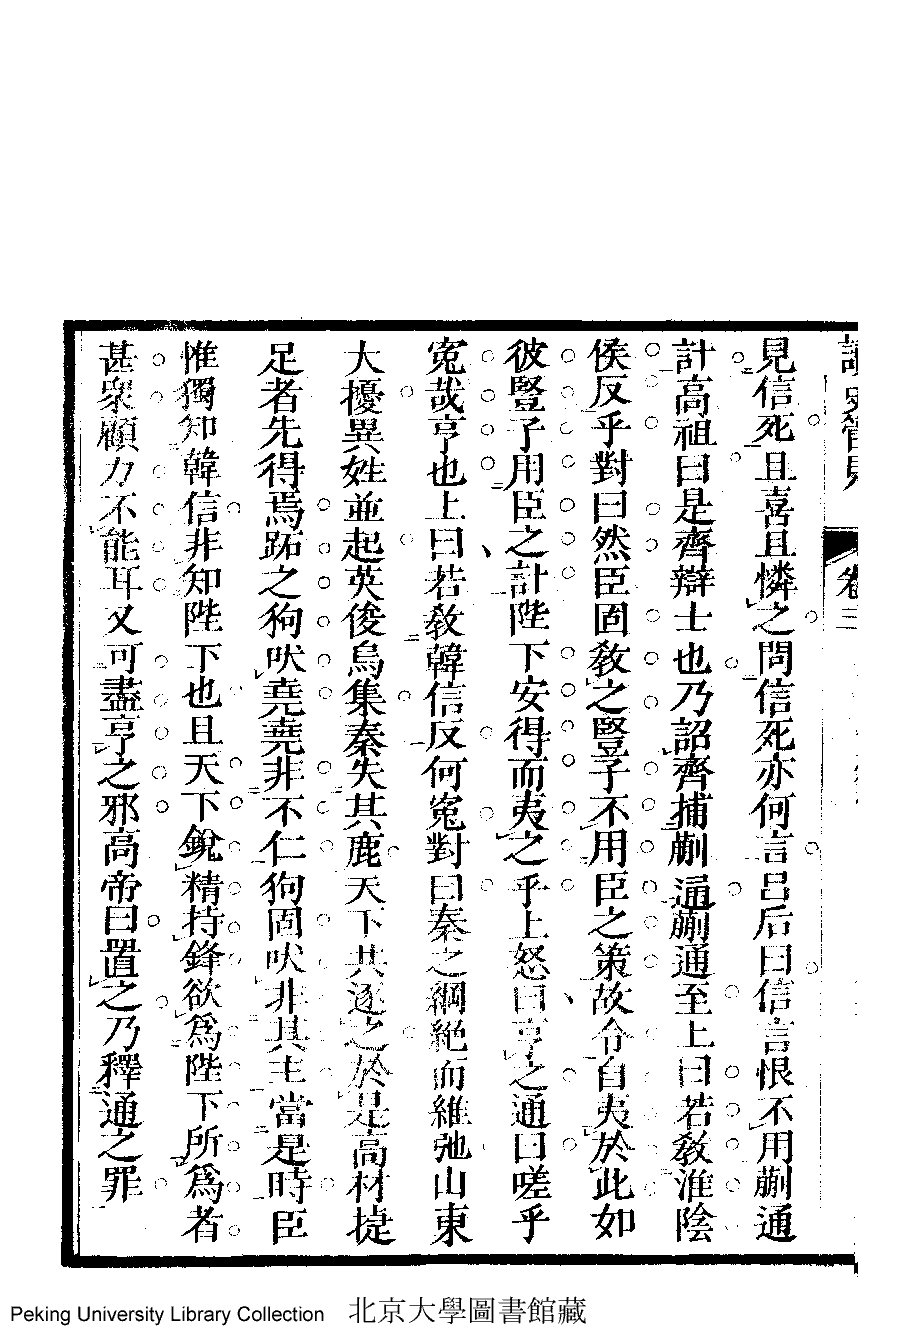 見信死且喜且憐之問信死亦何言呂后曰信言恨不用蒯通
計高祖曰是齊辯士也乃詔齊捕蒯通蒯通至上曰若教淮陰
侯反乎對曰然臣固教之豎子不用臣之策故令自夷於此如
彼豎子用臣之計陛下安得而夷之乎上怒曰亨之通曰嗟乎
冤哉亨也上曰若教韓信反何冤對曰秦之綱絶而維弛山東
大擾異姓並起英俊烏集秦失其鹿天下共逐之於是高材㨗
足者先得焉跖之狗吠堯堯非不仁狗固吠非其主當是時臣
惟獨知韓信非知陛下也且天下銳精持鋒欲爲陛下所爲者
甚衆顧力不能耳又可盡亨之邪高帝曰置之乃釋通之罪
卷三
Peking University Library Collection 北京大學圖書館藏